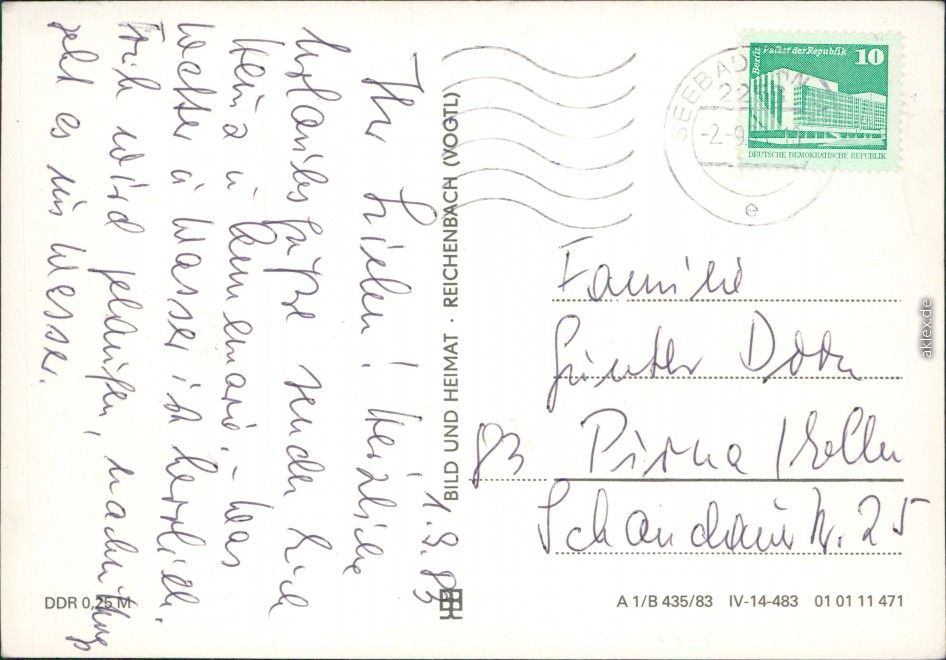 1.9.83
Ihr Lieben! Herzliche
Urlaubsgrüße senden Euch
Heinz u. Annemarie. – Das
Wetter u. Wasser ist herrlich.
Früh wird gelaufen, nachmittags
geht es ins Wasser.
BILD UND HEIMAT · REICHENBACH (VOGTL)
DDR 0,25 M
Berlin Palast der Republik
10
DEUTSCHE DEMOKRATISCHE REPUBLIK
SEEBAD
-2.-9.
e
Familie
Günter Dorn
83 Pirna
Schandauer Str. 25
A 1/B 435/83 IV-14-483 01 01 11 471
akleX.de